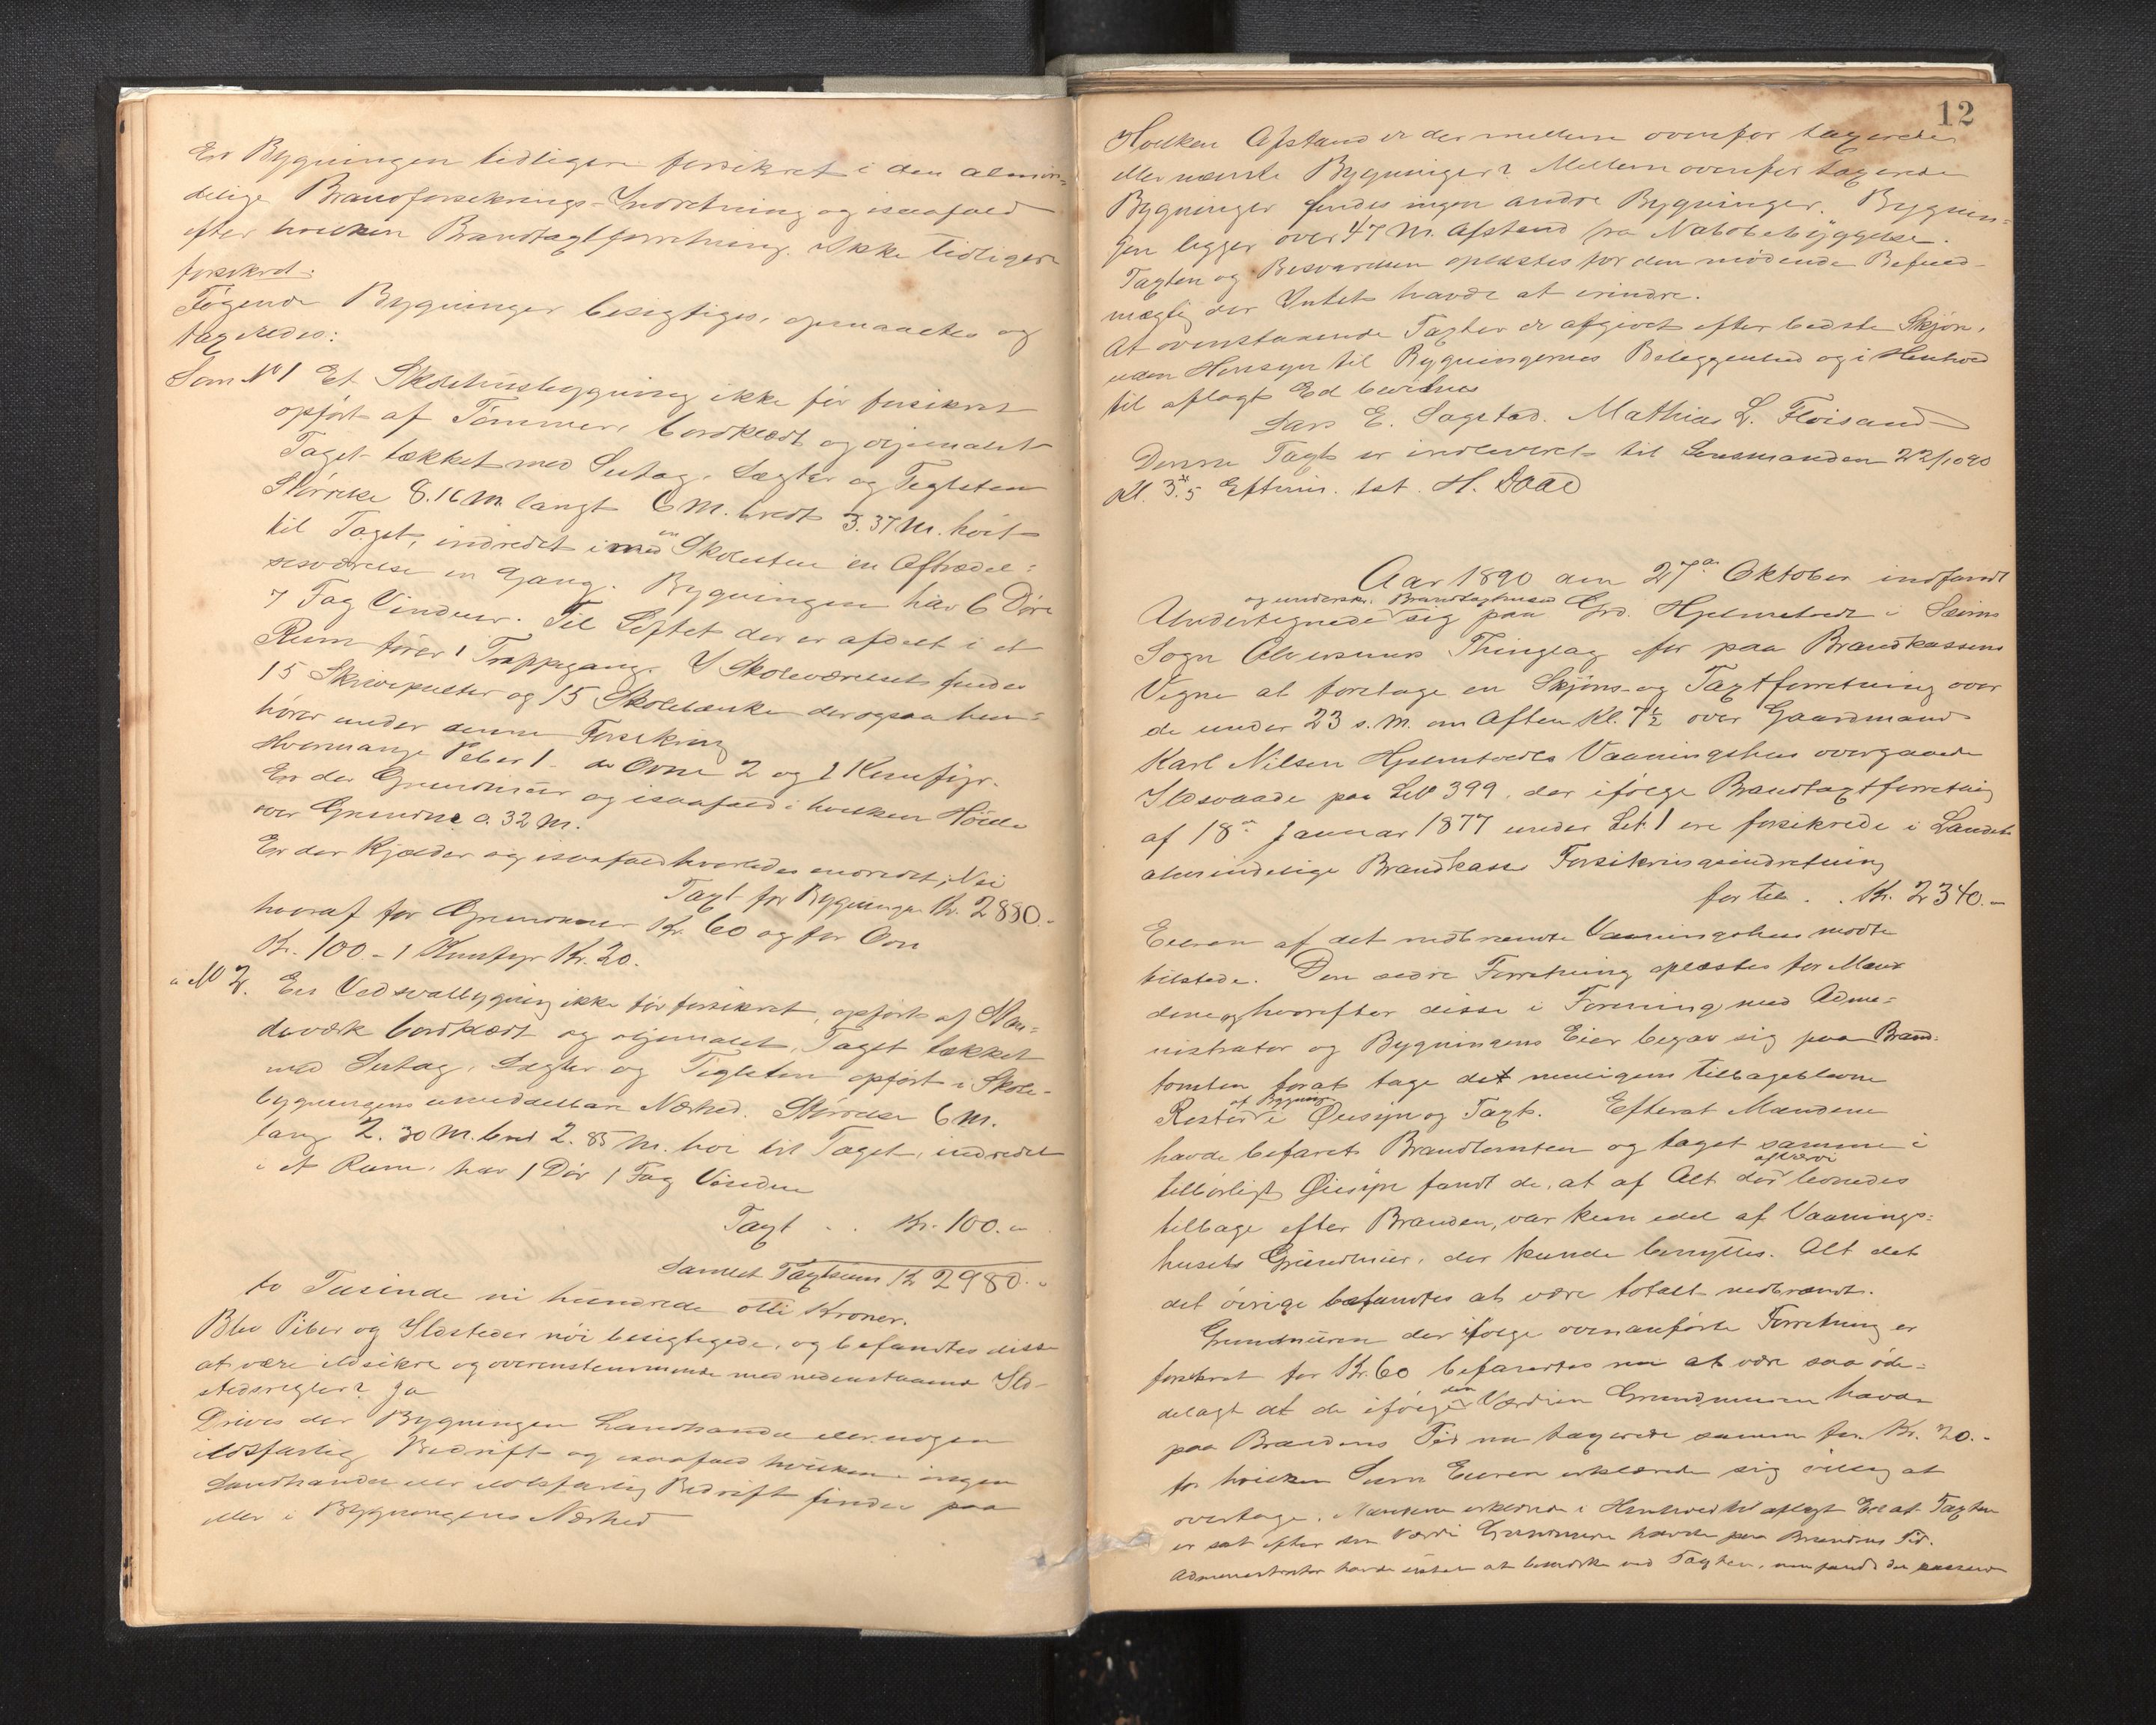 Er Bygningen tidligere forsikret i den almin=
delige Brandforsikrings-Indretning og isaafald
efter hvilken Brandtaxtforretning. Ikke tidligere
forsikret.
Følgende Bygninger besigtiges, opmaaltes og
taxeredes:
Som No 1 Et Skolehusbygning ikke før forsikret
opført af Tømmer, bordklædt og oljemalet
Taget tækket med Sutag, Lægter og Teglsten
Størrelse 8.16 M. langt 6 M. bredt 3.37 M. høit
til Taget, indredet med en Skolestue en Aftrædel=
sesværelse en Gang. Bygningen har 6 Døre
7 Fag Vinduer. Til Loftet der er afdelt i et
Rum fører 1 Trappegang. I Skoleværelset findes
15 Skrivepulter og 15 Skolebænke der ogsaa hen=
hører under denne Forsikring
Hvormange Piber 1 - do Ovne 2 og 1 Komfyr.
Er der Grundmur og isaafald i hvilken Høide
over Grunden 0.32 M.
Er der Kjælder og isaafald hvorledes indredet, Nei
Taxt for Bygningen Kr. 2880.-
hvoraf for Grundmur Kr. 60 og for Ovn
Kr. 100.- 1 Komfyr Kr. 20.
" No 2. En Vedsvalbygning ikke før forsikret, opført af Stan=
deværk bordklædt og oljemalet, Taget tækket
med Sutag, Lægter og Teglsten opført i Skole-
bygningens umiddelbare Nærhed. Størrelse 6 M.
lang 2.30 M. bred 2.85 M. høi til Taget, indredet
i et Rum, har 1 Dør 1 Fag Vindue
Taxt . . Kr. 100.-
Samlet Taxtsum Kr 2980.-
to Tusinde ni hundrede otti Kroner.
Blev Piber og Ildsteder nøi besigtigede, og befandtes disse
at være ildsikre og overensstemmende med nedenstaaende Ild-
stedsregler? Ja
Drives der Bygningen Landhandel eller nogen
ildsfarlig Bedrift og isaafald hvilken: ingen
Landhandel eller ildsfarlig Bedrift findes paa
eller i Bygningens Nærhed
12
Hvilken Afstand er der mellem ovenfor taxerede
eller nærmeste Bygninger? Mellem ovenfor taxerede
Bygninger findes ingen andre Bygninger. Bygnin=
gen ligger over 47 M. Afstand fra Nabobebyggelse.
Taxten og Besvarelsen oplæstes for den mødende Befuld-
mægtig der Intet havde at erindre.
At ovenstaaende Taxter er afgivet efter bedste Skjøn,
uden Hensyn til Bygningernes Beleggenhed og i Henhold
til aflagt Ed bevidnes
Lars E. Sagstad. Mathias L. Floisand
Denne Taxt er indleveret til Lensmanden 22/10 90
Kl. 3.5 Efterm. tst. H. Daae
Aar 1890 den 27de Oktober indfandt
Undertegnede og underskr. Brandtaxtmænd sig paa Grd. Hjelmtvedt i Sæims
Sogn Alversunds Thinglag for paa Brandkassens
Vegne at foretage en Skjøns- og Taxtforretning over
de under 23 s. M. om Aften Kl. 7½ over Gaardmand
Karl Nilsen Hjelmtvedts Vaaningshus overgaaede
Ildsvaade paa LNo 399, der ifølge Brandtaxtforretning
af 18de Januar 1877 under Lit. 1 ere forsikrede i Landets
almindelige Brandkasse Forsikringsindretning
for til . . Kr. 2340.-
Eieren af det nedbrændte Vaaningshus mødte
tilstede. Den ældre Forretning oplæstes for Mæn-
dene og hvorefter disse i Forening med Admi=
nistrator og Bygningens Eier begav sig paa Brand-
tomten forat tage det muligens tilbageblevne
Rester af Bygning i Øiesyn og Taxt. Efterat Mændene
havde befaret Brandtomten og taget samme i
tilbørligt Øiesyn fandt de, at af Alt der af Værdi levnedes
tilbage efter Branden, var kun edel af Vaanings=
husets Grundmur, der kunde benyttes. Alt det
det øvrige befandtes at være totalt nedbrændt.
Grundmuren der ifølge ovenanførte Forretning er
forsikret for Kr. 60 befandtes nu at være saa øde=
delagt at de ifølge den Værdien Grundmuren havde
paa Brandens Tid nu taxerede samme for Kr. 20.-
for hvilken Sum Eieren erklærede sig villig at
overtage. Mændene erklærede i Henhold til aflagt Ed at Taxten
er sat efter den Værdi Grundmuren havde paa Brandens Tid.
Administrator havde intet at bemærke ved Taxten, men fandt den passende